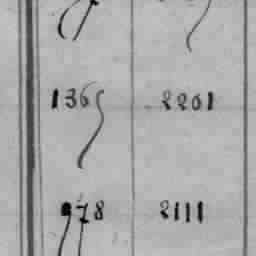 1365 2201
978 2111